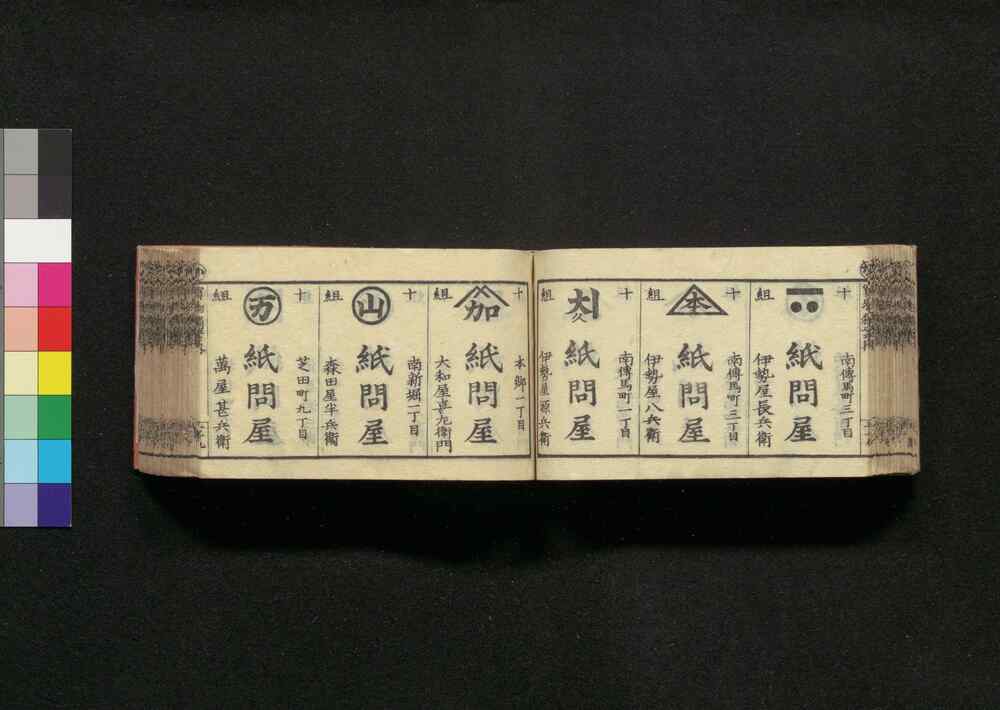 十組
南傳馬町三丁目
紙問屋
伊勢屋長兵衛
十組
本
南傳馬町三丁目
紙問屋
伊勢屋八兵衛
十組
久
南傳馬町一丁目
紙問屋
伊勢屋源兵衛
十組
加
本郷一丁目
紙問屋
大和屋喜左衛門
十組
山
南新堀一丁目
紙問屋
森田屋半兵衛
十組
万
芝田町九丁目
紙問屋
萬屋甚兵衛